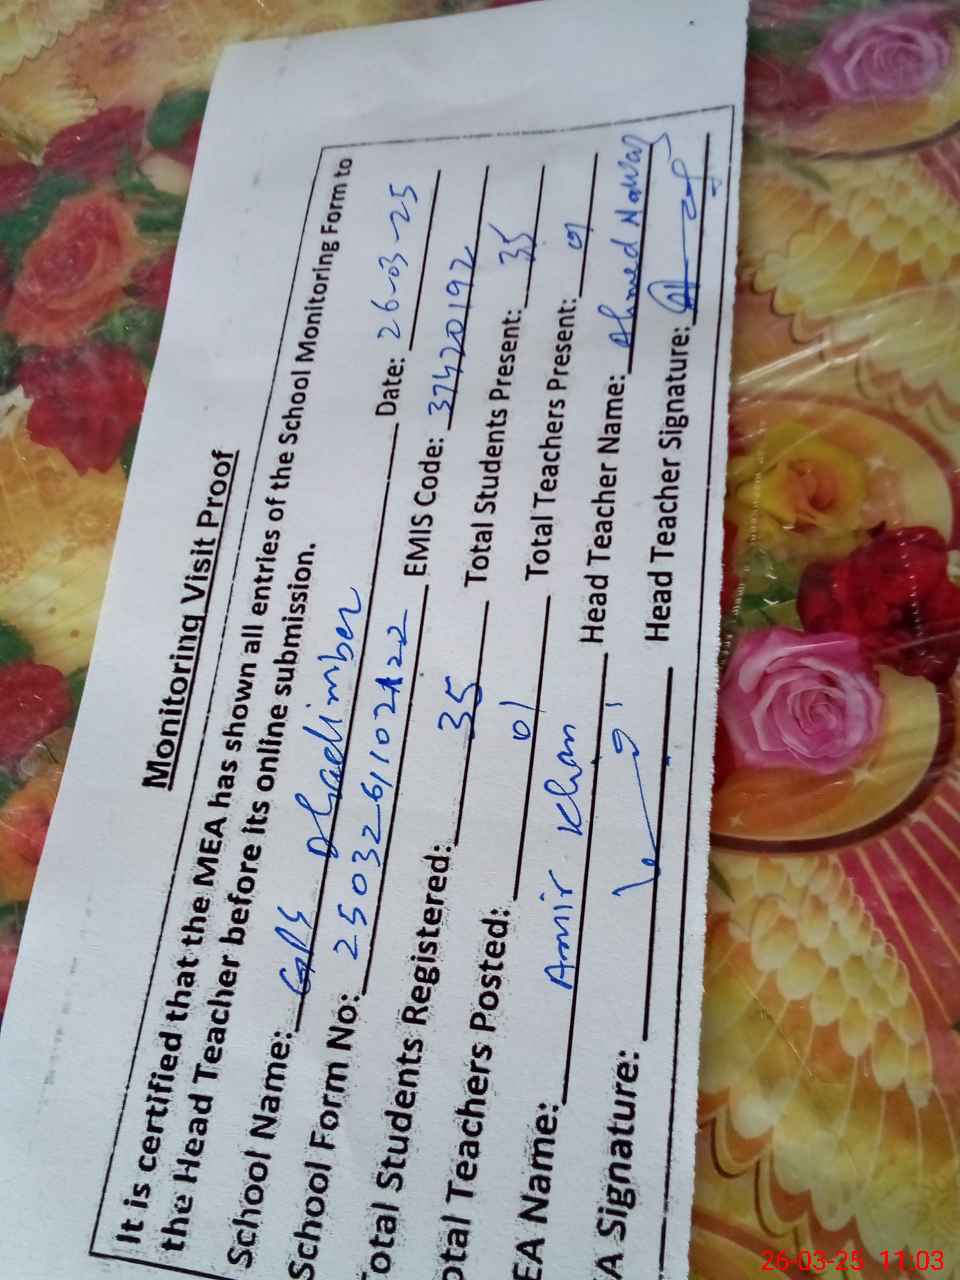 Monitoring Visit Proof
It is certified that the MEA has shown all entries of the School Monitoring Form to
the Head Teacher before its online submission.
School Name: GPS Dhadimber Date: 26-03-25
School Form No: EMIS Code: 37420192
Total Students Registered: 35 Total Students Present: 35
otal Teachers Posted: 01 Total Teachers Present: 01
EA Name: Amir Khan Head Teacher Name: Ahmed Nawaz
A Signature: Head Teacher Signature:
26-03-25 11:03